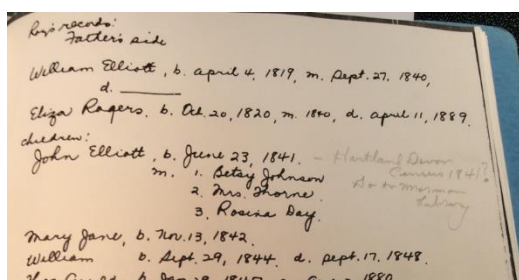 Roy's records:
Father's side
William Elliott, b. April 4, 1819, m. Sept. 27, 1840,
d. ______
Eliza Rogers, b. Oct. 20, 1820, m. 1840, d. April 11, 1889.
children:
John Elliott, b. June 23, 1841. - Hartland Devon
Census 1841?
m. 1. Betsy Johnson
Go to Mormon
2. Mrs. Thorne
Library
3. Rosina Day.
Mary Jane, b. Nov. 13, 1842.
William b. Sept. 29, 1844. d. Sept. 17, 1848.